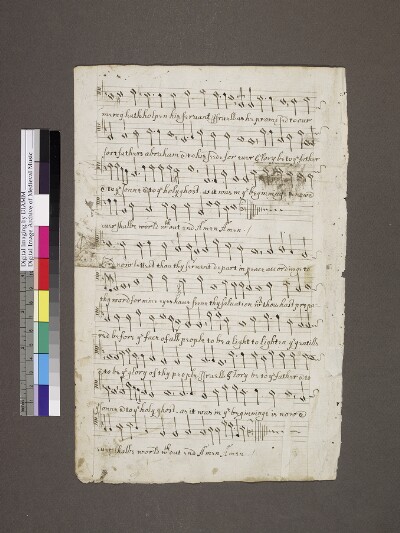 Digital Imaging by DIAMM
Digital Image Archive of Medieval Music
mercy hath holpen his servant Israell as he promised to our
forefathers abraham & to his seede for ever Glory be to yᵉ father
& to yᵉ sonne & to yᵉ holy ghost. as it was in yᵉ beginning
ever shalbe world wᵗʰout end Amen Amen
now lettest thou thy servant depart in peace according to
thy word for mine eyes have seene thy salvation wᶜʰ thou hast prepa
red before yᵉ face of all people to be a light to lighten yᵉ gentills
& to be yᵉ glory of thy people Israell Glory be to yᵉ father and
sonne & to yᵉ holy ghost. as it was in yᵉ beginninge is now &
ever shalbe world wᵗʰout end Amen Amen